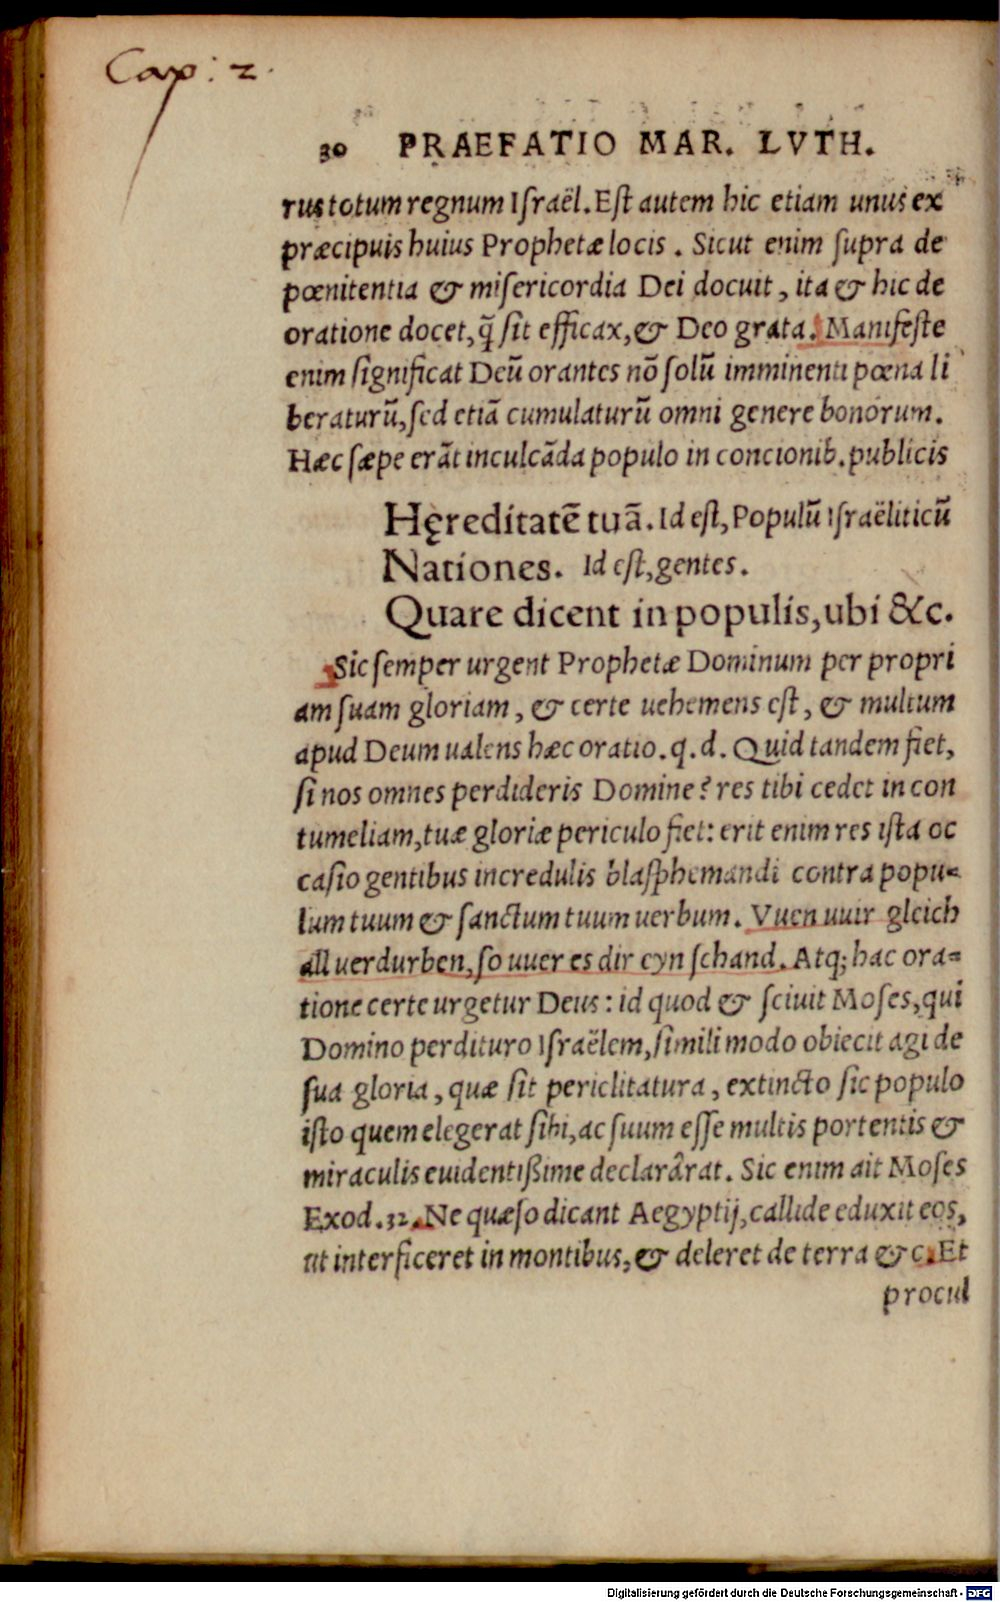 Cap: 2.
30 PRAEFATIO MAR. LVTH.
rus totum regnum Israël. Est autem hic etiam unus ex
præcipuis huius Prophetæ locis. Sicut enim supra de
pœnitentia & misericordia Dei docuit, ita & hic de
oratione docet, q̃ sit efficax, & Deo grata. Manifeste
enim significat Deũ orantes nõ solũ imminenti pœna li
beraturũ, sed etiã cumulaturũ omni genere bonorum.
Hæc sæpe erãt inculcãda populo in concionib. publicis
Hęreditatẽ tuã. Id est, Populũ Israëliticũ
Nationes. Id est, gentes.
Quare dicent in populis, ubi &c.
Sic semper urgent Prophetæ Dominum per propri
am suam gloriam, & certe uehemens est, & multum
apud Deum ualens hæc oratio. q. d. Quid tandem fiet,
si nos omnes perdideris Domine? res tibi cedet in con
tumeliam, tuæ gloriæ periculo fiet: erit enim res ista oc
casio gentibus incredulis blasphemandi contra popu-
lum tuum & sanctum tuum uerbum. Vuen uuir gleich
all uerdurben, so uuer es dir eyn schand. Atq; hac ora-
tione certe urgetur Deus: id quod & sciuit Moses, qui
Domino perdituro Israëlem, simili modo obiecit agi de
sua gloria, quæ sit periclitatura, extincto sic populo
isto quem elegerat sibi, ac suum esse multis portentis &
miraculis euidentißime declarârat. Sic enim ait Moses
Exod. 32. Ne quæso dicant Aegyptij, callide eduxit eos,
ut interficeret in montibus, & deleret de terra & c. Et
procul
Digitalisierung gefördert durch die Deutsche Forschungsgemeinschaft - DFG